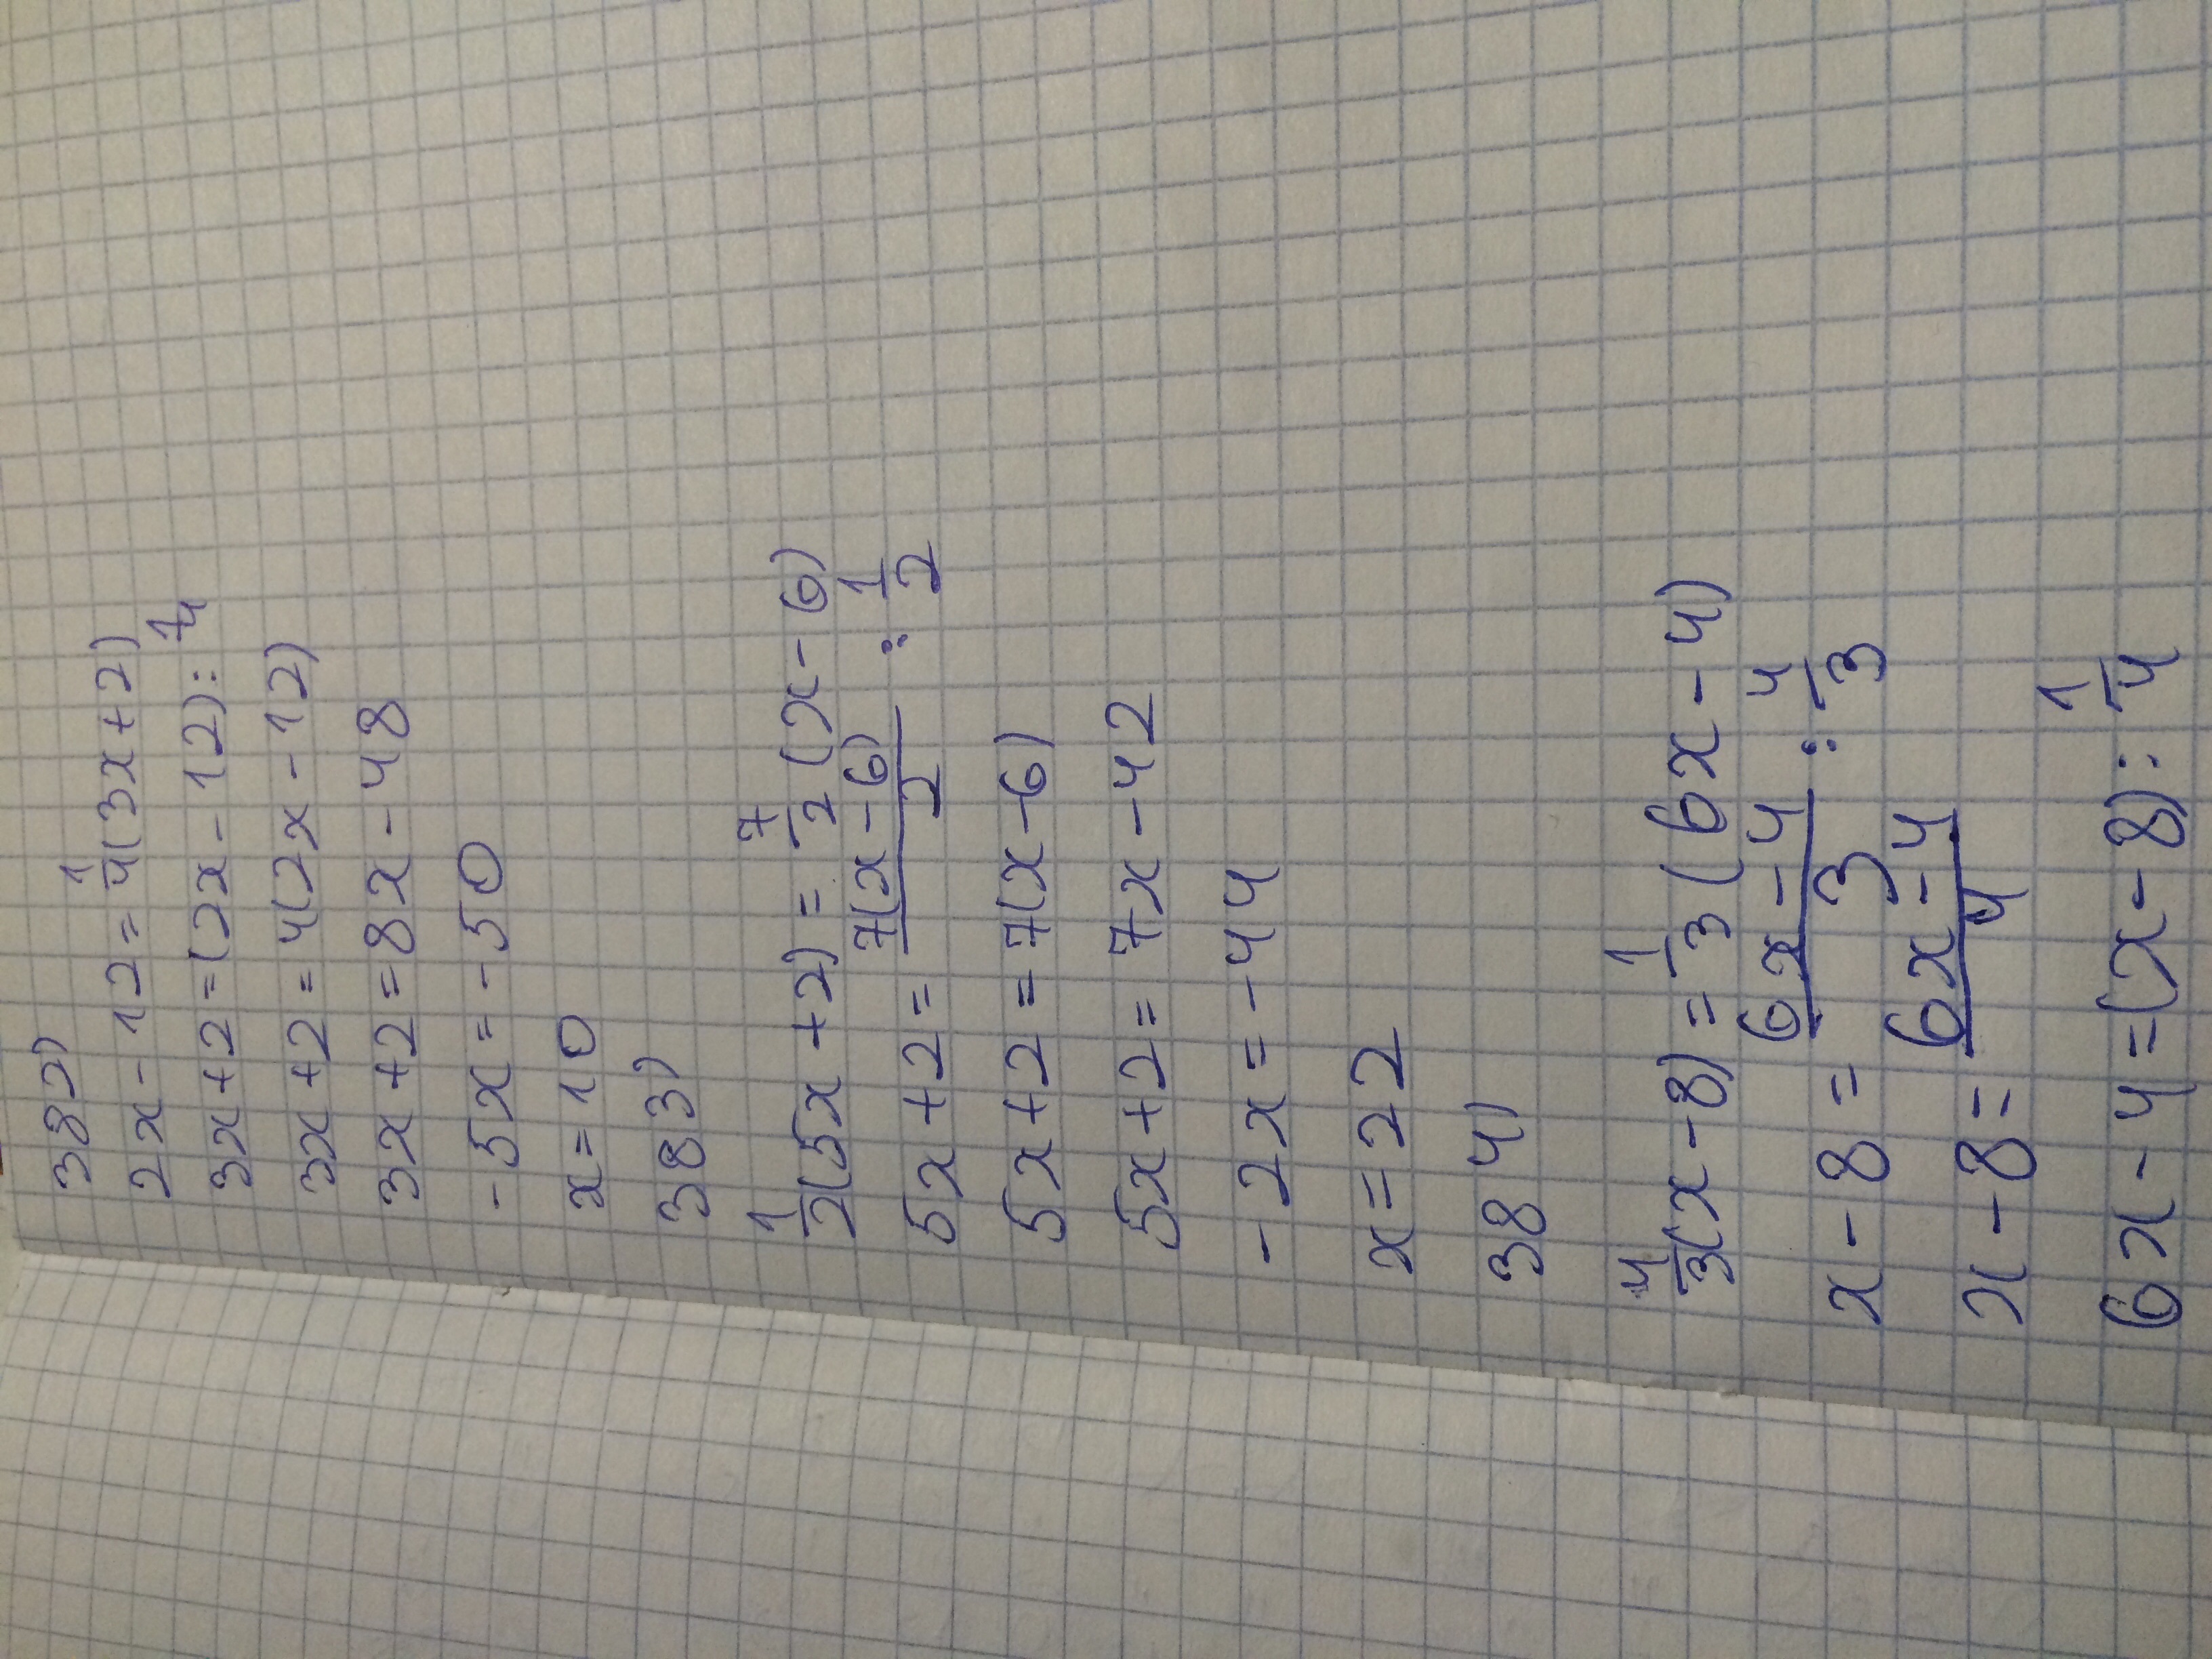 382)
2x-12=1/4(3x+2)
3x+2=(2x-12):1/4
3x+2=4(2x-12)
3x+2=8x-48
-5x=-50
x=10
383)
1/2(5x+2)=7/2(x-6)
5x+2=7(x-6)/2:1/2
5x+2=7(x-6)
5x+2=7x-42
-2x=-44
x=22
384)
4/3(x-8)=1/3(6x-4)
x-8=6x-4/3:4/3
x-8=6x-4/4
6x-4=(x-8):1/4